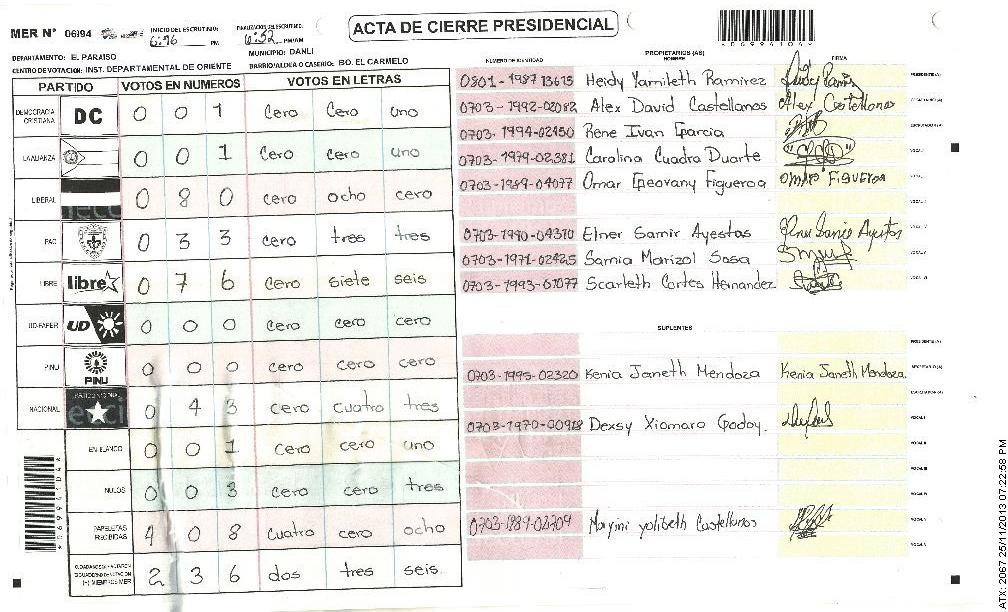 ACTA DE CIERRE PRESIDENCIAL
MER N° 06994
INICIO DEL ESCRUTINIO: PM
FINALIZACION DEL ESCRUTINIO: 6:52 PM/AM
DEPARTAMENTO: EL PARAISO
MUNICIPIO: DANLI
CENTRO DE VOTACION: INST. DEPARTAMENTAL DE ORIENTE
BARRIO/ALDEA O CASERIO: BO. EL CARMELO
PARTIDO VOTOS EN NUMEROS VOTOS EN LETRAS
DEMOCRACIA CRISTIANA DC 0 0 1 Cero Cero uno
LA ALIANZA 0 0 1 Cero cero uno
LIBERAL 0 8 0 cero ocho cero
PAC 0 3 3 cero tres tres
LIBRE libre 0 7 6 cero siete seis
UD-FAPER UD 0 0 0 cero cero cero
PINU PINU 0 0 0 cero cero cero
NACIONAL 0 4 3 cero cuatro tres
EN BLANCO 0 0 1 cero cero uno
NULOS 0 0 3 cero cero tres
PAPELETAS RECIBIDAS 4 0 8 cuatro cero ocho
2 3 6 dos tres seis
*06994104*
PROPIETARIOS (AS)
NUMERO DE IDENTIDAD NOMBRE FIRMA
0801-1987 13615 Heidy Yamileth Ramirez PRESIDENTE(A)
0703-1992-02082 Alex David Castellanos Alex Castellanos SECRETARIO(A)
0703-1994-02150 Rene Ivan Garcia ESCRUTADOR(A)
0703-1979-02381 Carolina Cuadra Duarte VOCAL I
0703-1989-04077 Omar Geovany Figueroa OMAR FIGUEROA VOCAL II
VOCAL III
0703-1990-04310 Elner Samir Ayestas Elner Samir Ayestas VOCAL IV
0703-1971-02425 Samia Marizol Sosa VOCAL V
0703-1993-01077 Scarleth Cortes Hernandez VOCAL VI
SUPLENTES
PRESIDENTE(A)
0703-1995-02320 Kenia Janeth Mendoza Kenia Janeth Mendoza. SECRETARIO(A)
ESCRUTADOR(A)
0703-1970-00918 Dexsy Xiomara Godoy. VOCAL I
VOCAL II
VOCAL III
VOCAL IV
0703-1989-02709 Mayini yolibeth Castellanos VOCAL V
VOCAL VI
*06994104*
ATX: 2067 25/11/2013 07:22:58 PM